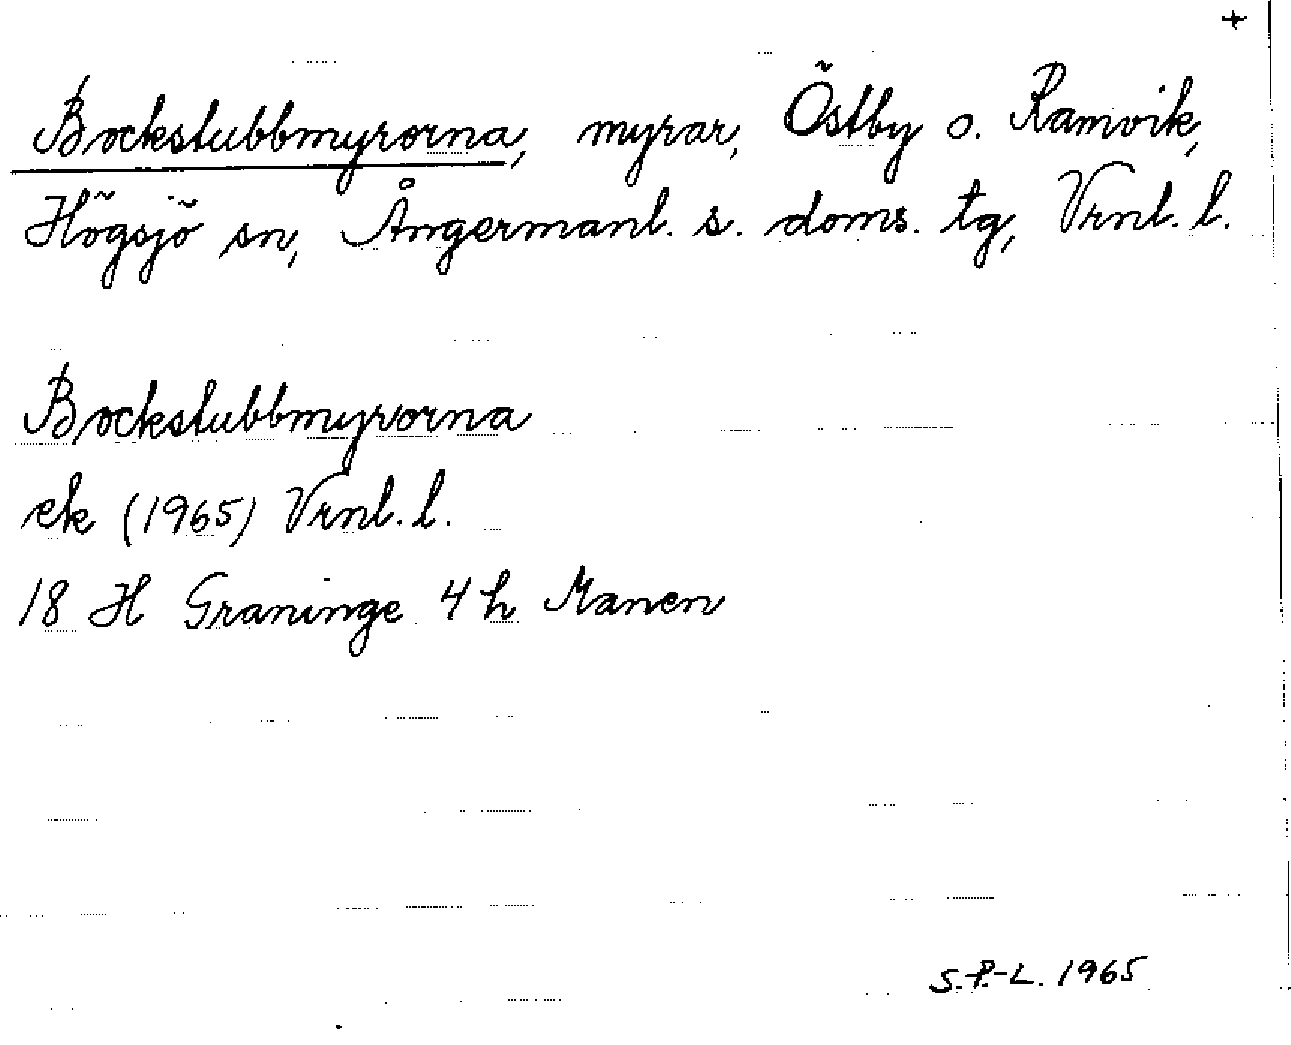 +
Bockstubbmyrorna, myrar, Östby o. Ramvik,
Högsjö sn, Ångermanl. s. doms. tg, Vrnl. l.
Bockstubbmyrorna
ek (1965) Vrnl. l.
18 H Graninge 4 h Manen
S.P-L. 1965